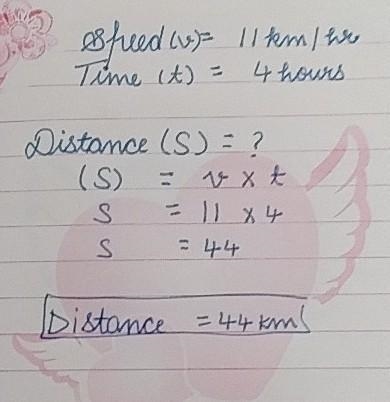 Speed (v) = 11 km/hr
Time (t) = 4 hours
Distance (S) = ?
(S) = v x t
S = 11 x 4
S = 44
Distance = 44 km